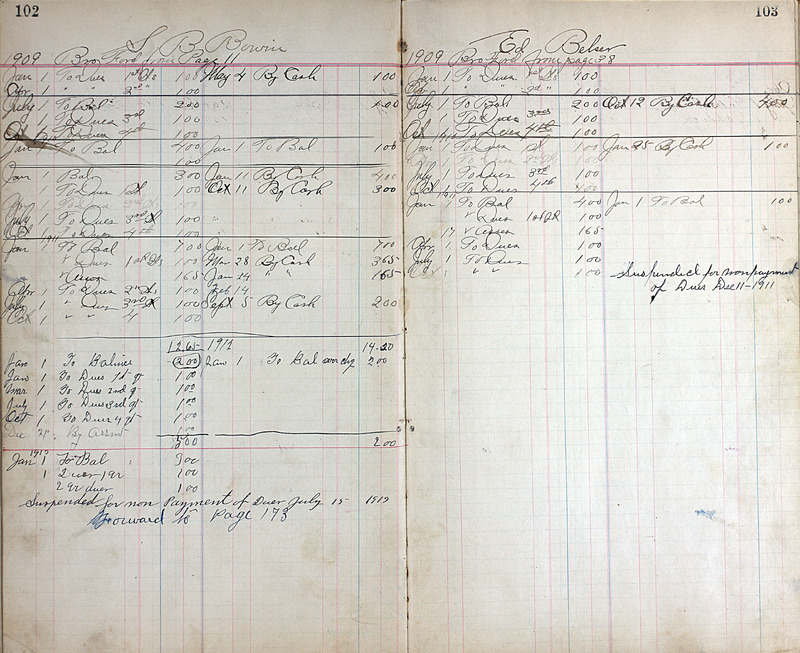 102
S B Bowin
1909 Bro Ford from Page 11
Jan 1 To Dues 1st 1 00 May 4 By Cash 1 00
Apr 1 " " 2nd " 1 00
July 1 To Bal 2 00
1 To Dues 3rd 1 00
Oct 1 To Dues 4th 1 00
Jan 1 To Bal 4 00 Jan 1 To Bal 1 00
1 00
Jan 1 Bal 3 00 Jan 11 By Cash 4 00
1 To Dues 1st 1 00 Oct 11 By Cash 3 00
July 1 To Dues 3rd 1 00
Oct 1 To Dues 4th 1 00
1911
Jan 1 To Bal 7 00 Jan 1 To Bal 7 00
" Dues 1st 1 00 Mar 28 By Cash 3 65
" 1 65 Jan 24 " " 1 65
Apr 1 To Dues 2nd 1 00 Feb 14
July 1 " Dues 3rd 1 00 Sept 5 By Cash 2 00
Oct 1 " " 4 1 00
12.65 1912 14.20
Jan 1 To Balance 2 00 Jan 1 To Bal over chg 2 00
Jan 1 To Dues 1st qr 1 00
Mar 1 To Dues 2nd qr 1 00
July 1 To Dues 3rd qr 1 00
Oct 1 To Dues 4 qr 1 00
Dec By Assmt 1 00
5 00 2 00
Jan 1 To Bal 3 00
1 Dues 1 qr 1 00
2 qr dues 1 00
Suspended for non Payment of Dues July 15 1913
Forward to Page 173
103
Ed Belser
1909 Bro Ford from page 38
Jan 1 To Dues 1st 1 00
Apr 1 " " 2nd " 1 00
July 1 To Bal 2 00 Oct 12 By Cash 4 00
1 To Dues 3rd 1 00
Oct 1 To Dues 4th 1 00
Jan 1 To Dues 1st 1 00 Jan 25 By Cash 1 00
July 1 To Dues 3rd 1 00
Oct 1 To Dues 4th
1911
Jan 1 To Bal 4 00 Jan 1 To Bal 1 00
" Dues 1st 1 00
17 " 1 65
Apr 1 To Dues 1 00
July 1 To Dues 1 00
" " 1 00 Suspended for non payment
of Dues Dec 11-1911